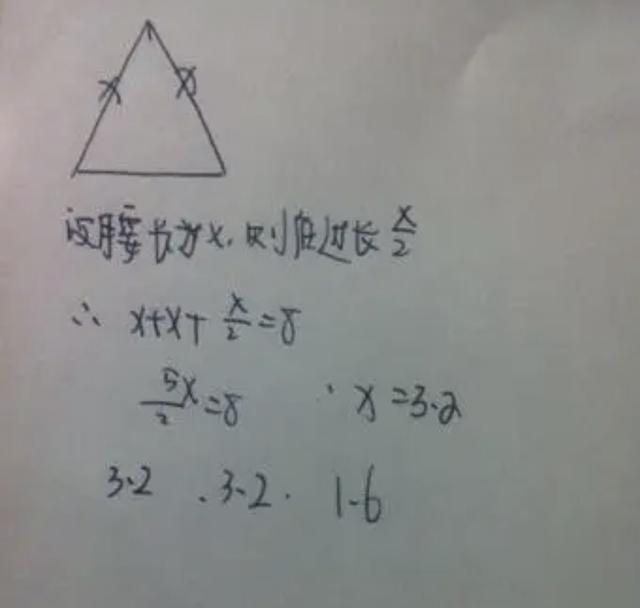 x x
设腰长为x,则底边长x/2
∴ x+x+x/2=8
5x/2=8 ∴ x=3.2
3.2 . 3.2 . 1.6